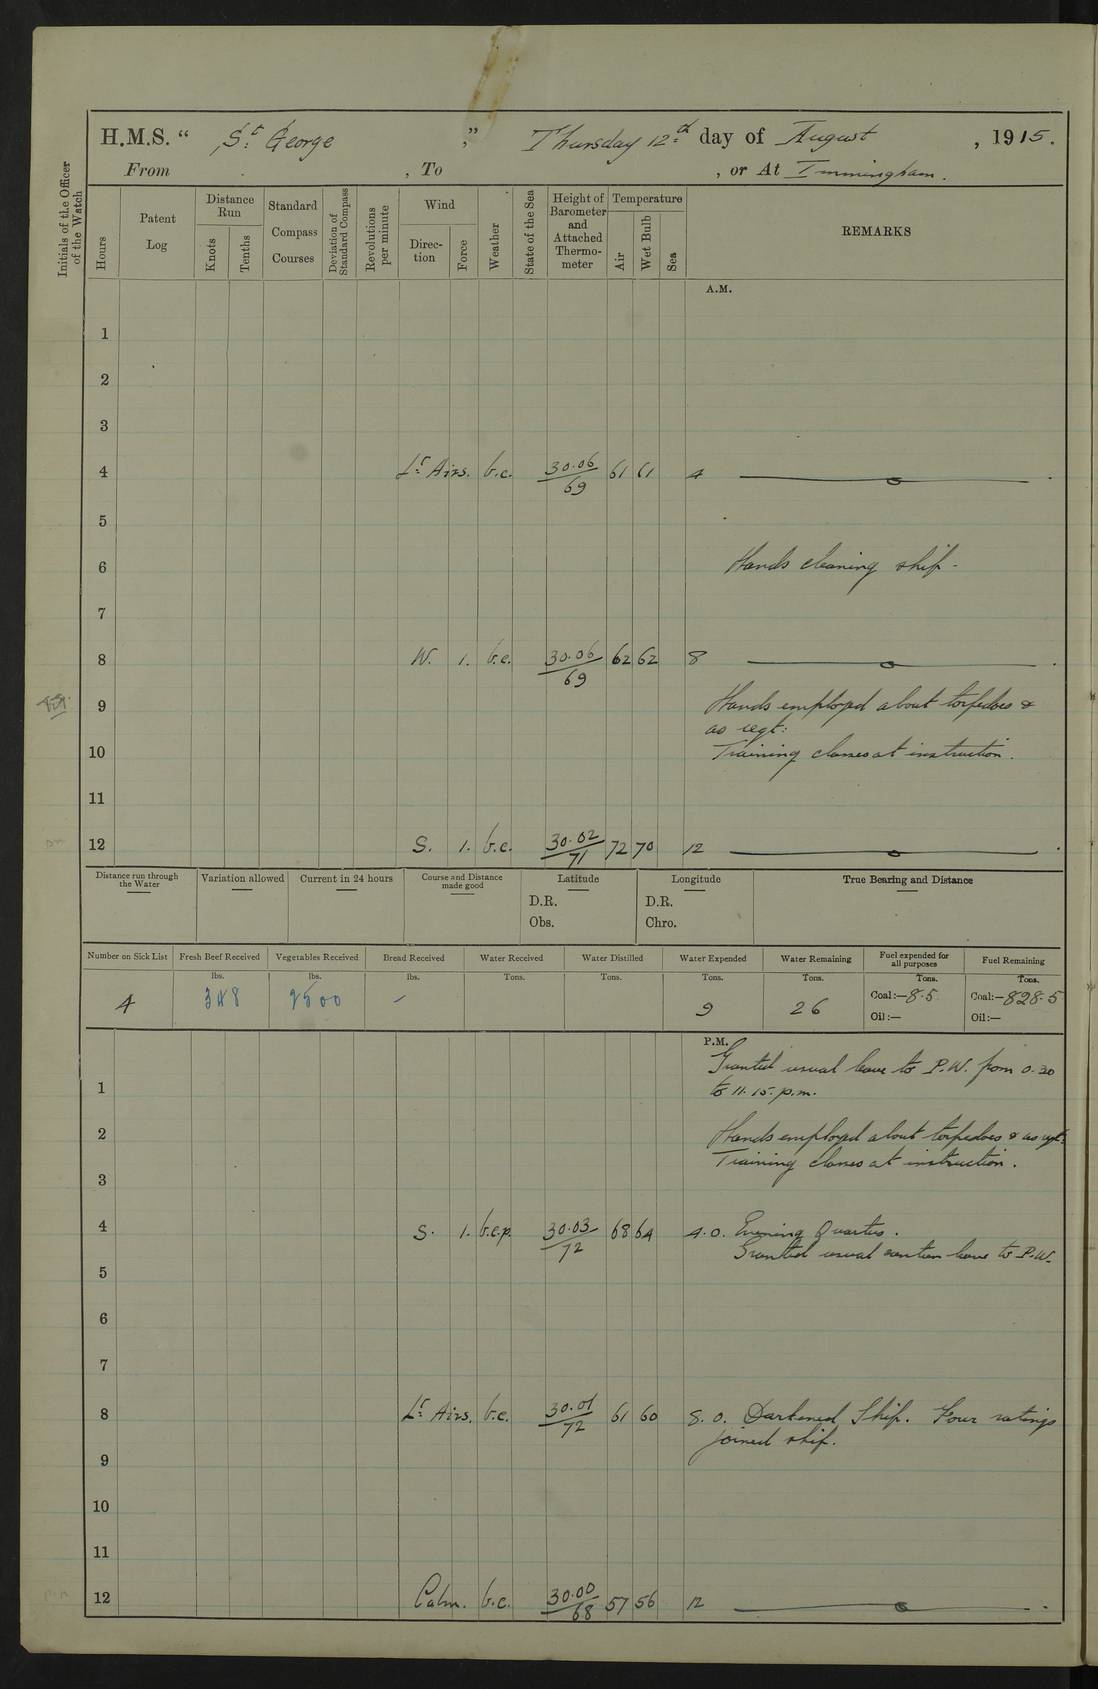 H.M.S. “ St. George ” Thursday 12th day of August , 1915.
From , To , or At Immingham.
Initials of the Officer of the Watch
Hours
Patent Log
Distance Run
Knots
Tenths
Standard Compass Courses
Deviation of Standard Compass
Revolutions per minute
Wind
Direc-tion
Force
Weather
State of the Sea
Height of Barometer and Attached Thermo-meter
Temperature
Air
Wet Bulb
Sea
REMARKS
A.M.
1
2
3
4 Lt Airs. b.c. 30.06/69 61 61 4
5
6 Hands cleaning ship -
7
8 W. 1. b.c. 30.06/69 62 62 8
9 Hands employed about torpedoes &
as reqt:
10 Training classes at instruction.
11
12 S. 1. b.c. 30.02/71 72 70 12
Distance run through the Water
Variation allowed
Current in 24 hours
Course and Distance made good
Latitude
D.R.
Obs.
Longitude
D.R.
Chro.
True Bearing and Distance
Number on Sick List
4
Fresh Beef Received
lbs.
348
Vegetables Received
lbs.
2500
Bread Received
lbs.
-
Water Received
Tons.
Water Distilled
Tons.
Water Expended
Tons.
9
Water Remaining
Tons.
26
Fuel expended for all purposes
Tons.
Coal:—8.5
Oil:—
Fuel Remaining
Tons.
Coal:—828.5
Oil:—
P.M.
Granted usual leave to P.W. from 0.30
1 to 11.15. p.m.
2 Hands employed about torpedoes & as reqt:
Training classes at instruction.
3
4 S. 1. b.c.p. 30.03/72 68 64 4.0. Evening Quarters.
Granted usual canteen leave to P.W.
5
6
7
8 Lt Airs. b.c. 30.01/72 61 60 8.0. Darkened Ship. Four ratings
joined ship.
9
10
11
12 Calm. b.c. 30.00/68 57 56 12